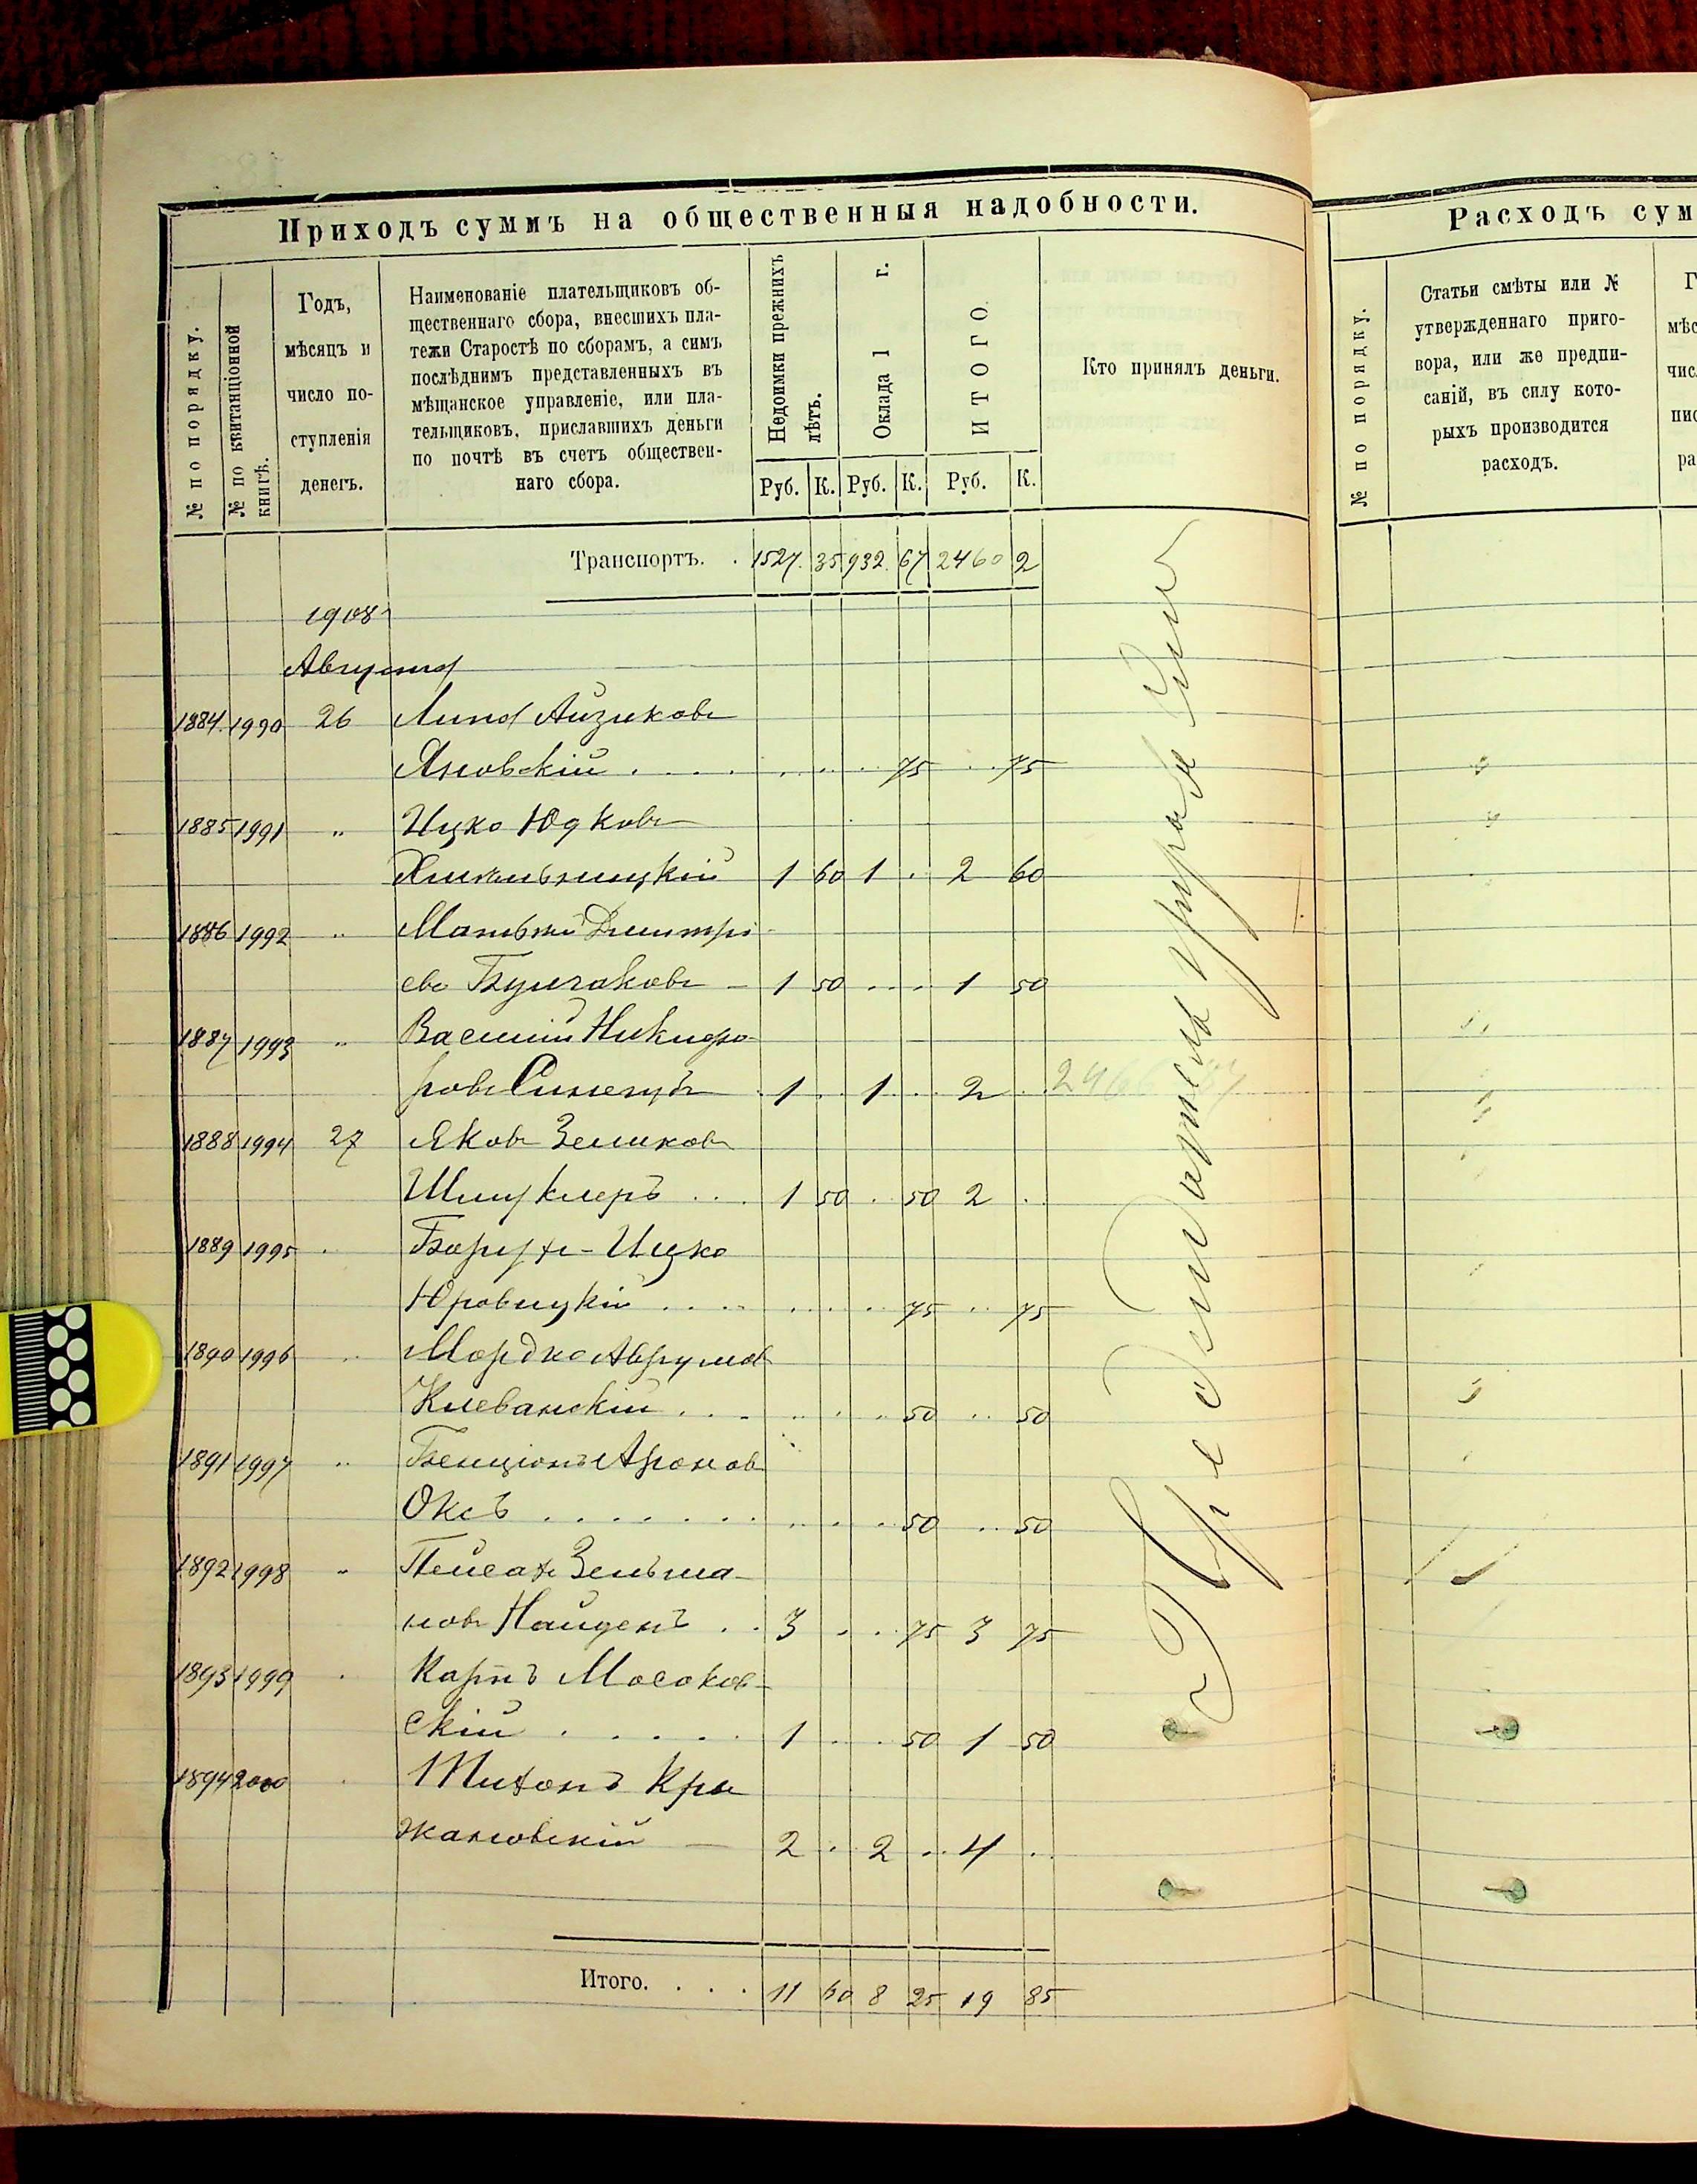 Приходъ суммъ на общественныя надобности.
№ по порядку.
№ по квитанціонной книгѣ.
Годъ, мѣсяцъ и число поступленія денегъ.
Наименованіе плательщиковъ об-
щественнаго сбора, внесшихъ пла-
тежи Старостѣ по сборамъ, а симъ
послѣднимъ представленныхъ въ
мѣщанское управленіе, или пла-
тельщиковъ, приславшихъ деньги
по почтѣ въ счетъ обществен-
наго сбора.
Недоимки прежнихъ лѣтъ.
Оклада 1 г.
ИТОГО
Кто принялъ деньги.
Руб. К. Руб. К. Руб. К.
Транспортъ. . 1527. 35 932. 67 2460 2
1908
Августа
1884. 1990 26 Айзиковъ
Яновскій . . . . 75 . . 75
1885 1991 „ Ицко Юдковъ
Хмельницкій 1 60 1 . 2 60
1886 1992 „ Дмитрі
евъ Булгаковъ - 1 50 . . . 1 50
1887 1993 „ Василій Никифо-
ровъ . 1 . 1 . . 2 . .
1888 1994 27 Яковъ Зеликовъ
Шмуклеръ . . . 1 50 . 50 2 .
1889 1995 . Борухъ-Ицко
Юровицкій . . . . 75 . . 75
1890 1996 . . Мордко Аврумов
Клеванскій . . . . 50 . . 50
1891 1997 . . Бенціонъ Аронов
Оксъ . . . . . . . 50 . . 50
1892 1998 „ Пейсахъ Зельма-
новъ Найденъ . . 3 . . . 75 3 75
1893 1999 . Карпъ Мосоков-
скій . . . . . 1 . . . 50 1 50
1894 2000 . Тихонъ Кры
жановскій — 2 . 2 . . 4 .
Итого. . . . 11 60 8 25 19 85
Предсѣдатель Управы
Расходъ сум
№ по порядку.
Статьи смѣты или №
утвержденнаго приго-
вора, или же предпи-
саній, въ силу кото-
рыхъ производится
расходъ.
Г
мѣс
чис
пис
ра